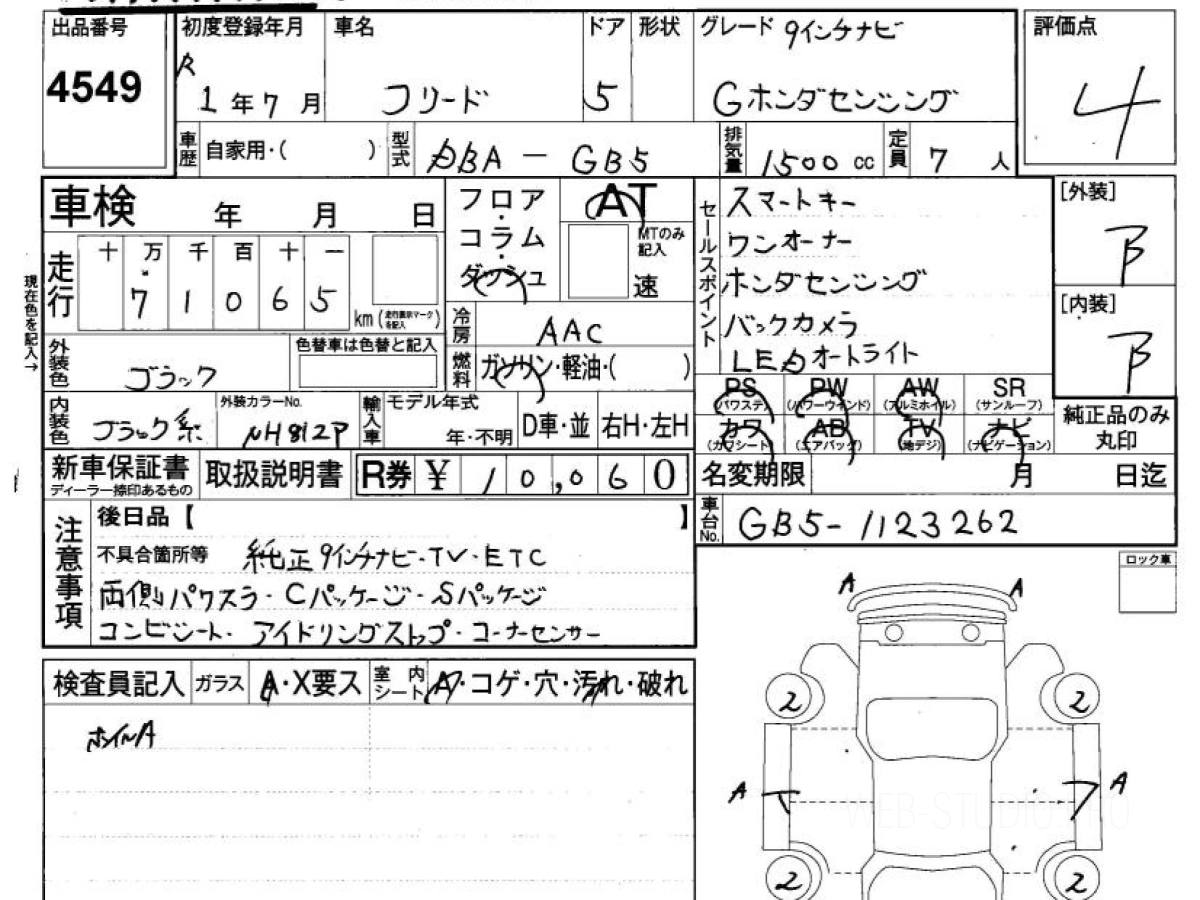 出品番号 初度登録年月 車名 ドア 形状 グレード 9インチナビ 評価点
4549 R 1年7月 フリード 5 Gホンダセンシング 4
車歴 自家用・( ) 型式 DBA - GB5 排気量 1500 cc 定員 7 人
車検 年 月 日
フロア・コラム・ダッシュ AT
MTのみ記入 速
セールスポイント
スマートキー
ワンオーナー
ホンダセンシング
バックカメラ
LED オートライト
[外装] B
[内装] B
現在色を記入→
走行 十 万 千 百 十 一
7 1 0 6 5 km (走行表示マークを記入)
冷房 AAC
外装色 ブラック 色替車は色替と記入
燃料 ガソリン・軽油・( )
PS (パワステ) PW (パワーウインド) AW (アルミホイル) SR (サンルーフ)
カワ (カワシート) AB (エアバッグ) TV (地デジ) ナビ (ナビゲーション)
純正品のみ丸印
内装色 ブラック系 外装カラーNo. NH812P 輸入車 モデル年式 年・不明 D車・並 右H・左H
新車保証書 ディーラー捺印あるもの 取扱説明書 R券 ¥ 10,060
名変期限 月 日迄
車台No. GB5-1123262
注意事項
後日品【 】
不具合箇所等 純正9インチナビ・TV・ETC
両側パワスラ・Cパッケージ・Sパッケージ
コンビシート・アイドリングストップ・コーナーセンサー
ロック車
検査員記入 ガラス A・X要ス 室内シート A・コゲ・穴・汚れ・破れ
ホイルA
A A
2 2
A A
WEB-STUDIO.PRO
2 2